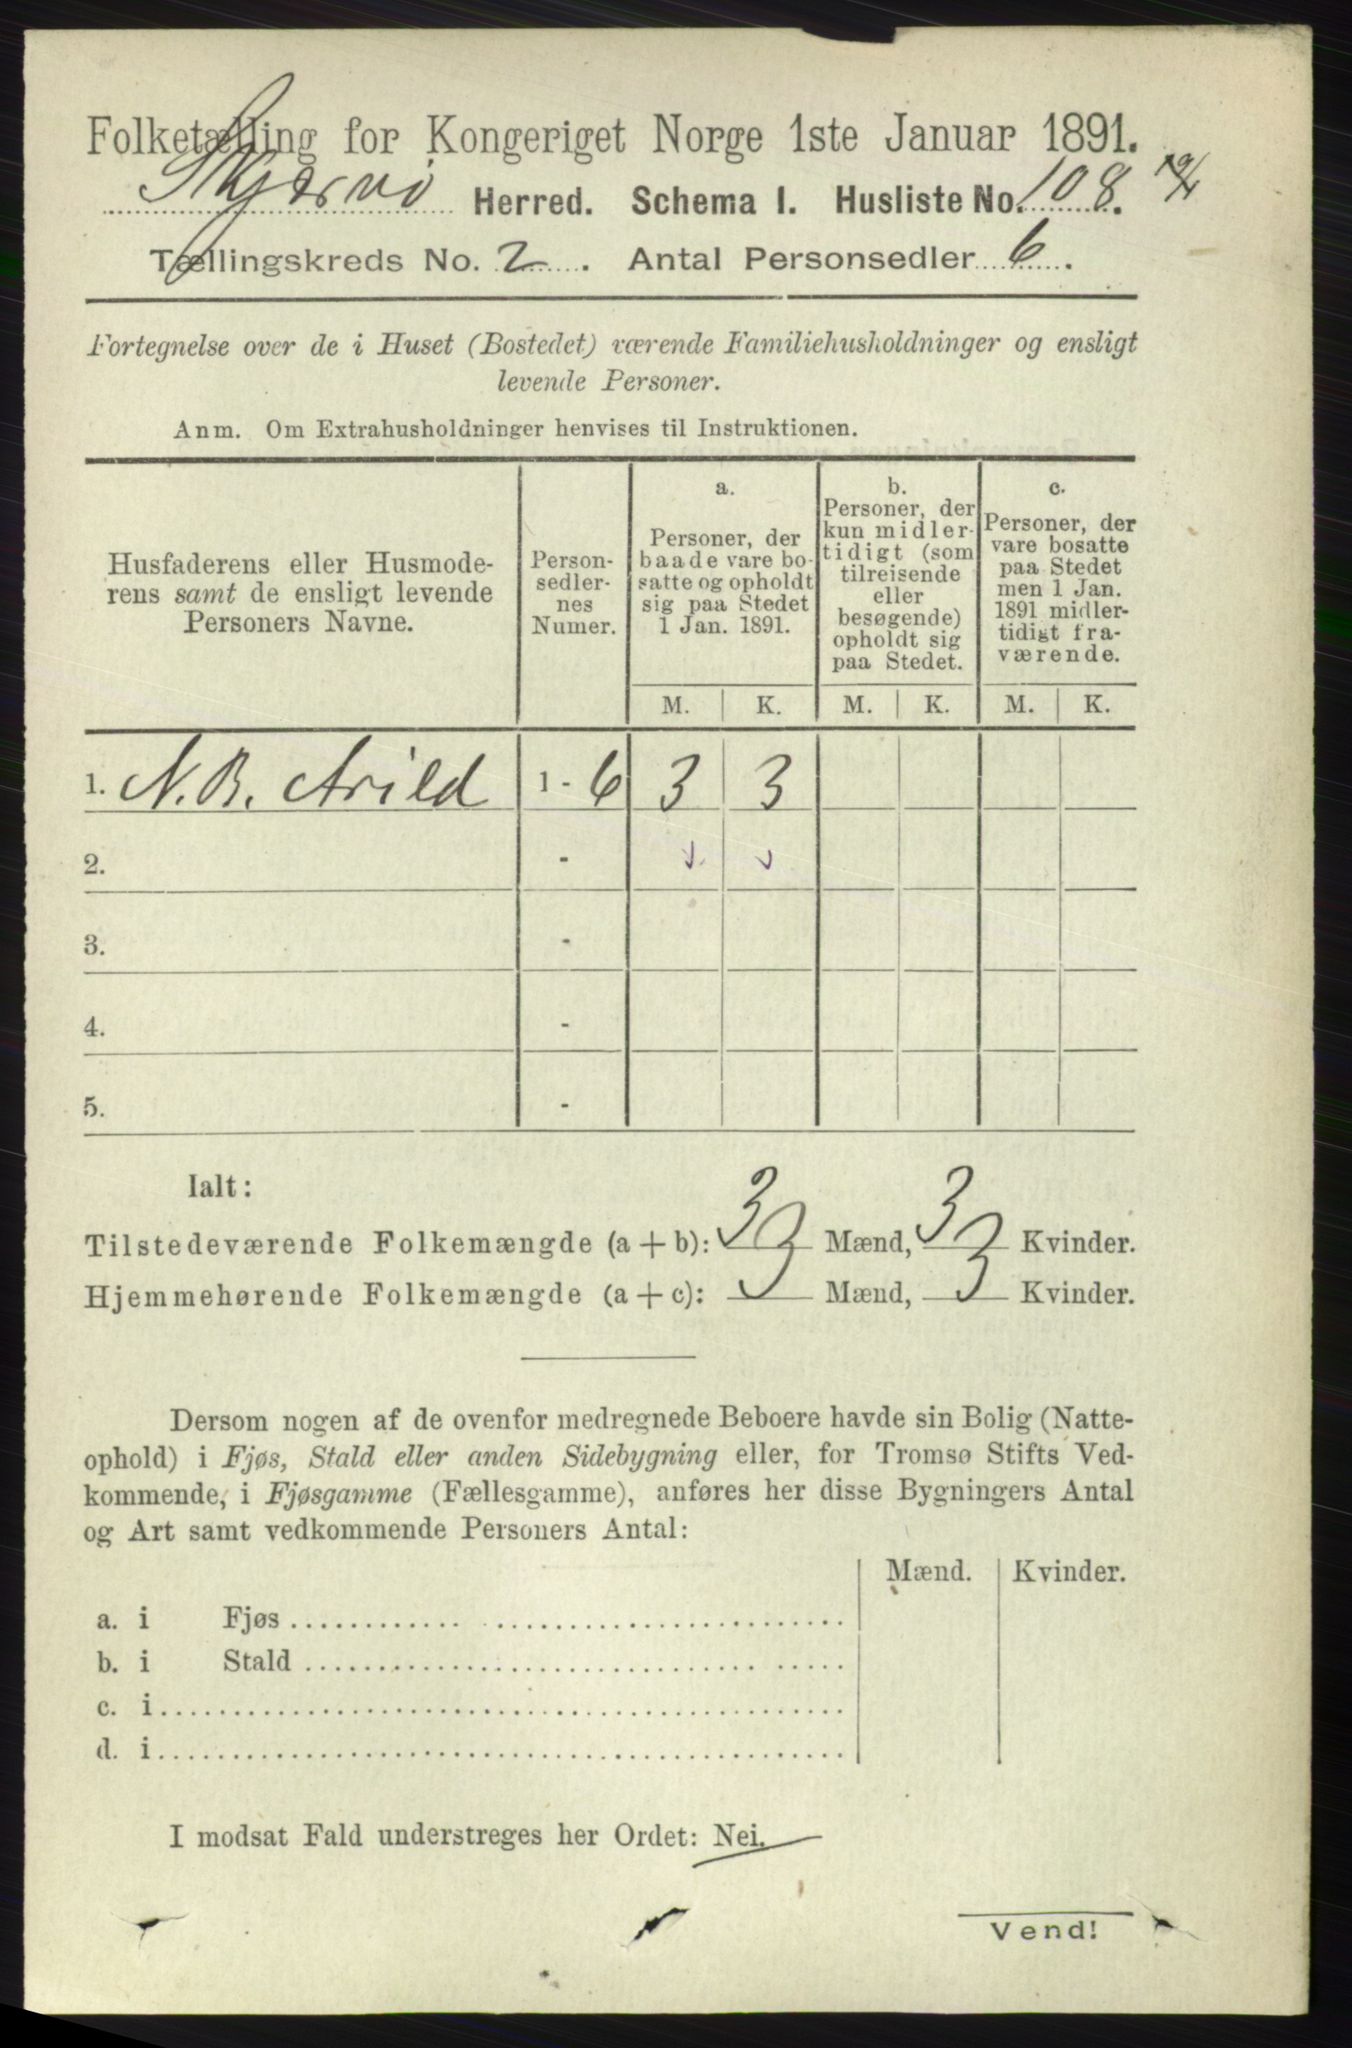 Folketælling for Kongeriget Norge 1ste Januar 1891.
Skjærvö Herred. Schema I. Husliste No. 108.
Tællingskreds No. 2. Antal Personsedler 6.
Fortegnelse over de i Huset (Bostedet) værende Familiehusholdninger og ensligt
levende Personer.
Anm. Om Extrahusholdninger henvises til Instruktionen.
Husfaderens eller Husmode-
rens samt de ensligt levende
Personers Navne.
Person-
sedler-
nes
Numer.
a.
Personer, der
baade vare bo-
satte og opholdt
sig paa Stedet
1 Jan. 1891.
b.
Personer, der
kun midler-
tidigt (som
tilreisende
eller
besøgende)
opholdt sig
paa Stedet.
c.
Personer, der
vare bosatte
paa Stedet
men 1 Jan.
1891 midler-
tidigt fra-
værende.
M. K. M. K. M. K.
1. N. B. Arild 1 - 6 3 3
2. -
3. -
4. -
5. -
Ialt:
Tilstedeværende Folkemængde (a + b): 3 Mænd, 3 Kvinder.
Hjemmehørende Folkemængde (a + c): 3 Mænd, 3 Kvinder.
Dersom nogen af de ovenfor medregnede Beboere havde sin Bolig (Natte-
ophold) i Fjøs, Stald eller anden Sidebygning eller, for Tromsø Stifts Ved-
kommende, i Fjøsgamme (Fællesgamme), anføres her disse Bygningers Antal
og Art samt vedkommende Personers Antal:
Mænd. Kvinder.
a. i Fjøs
b. i Stald
c. i
d. i
I modsat Fald understreges her Ordet: Nei.
Vend!